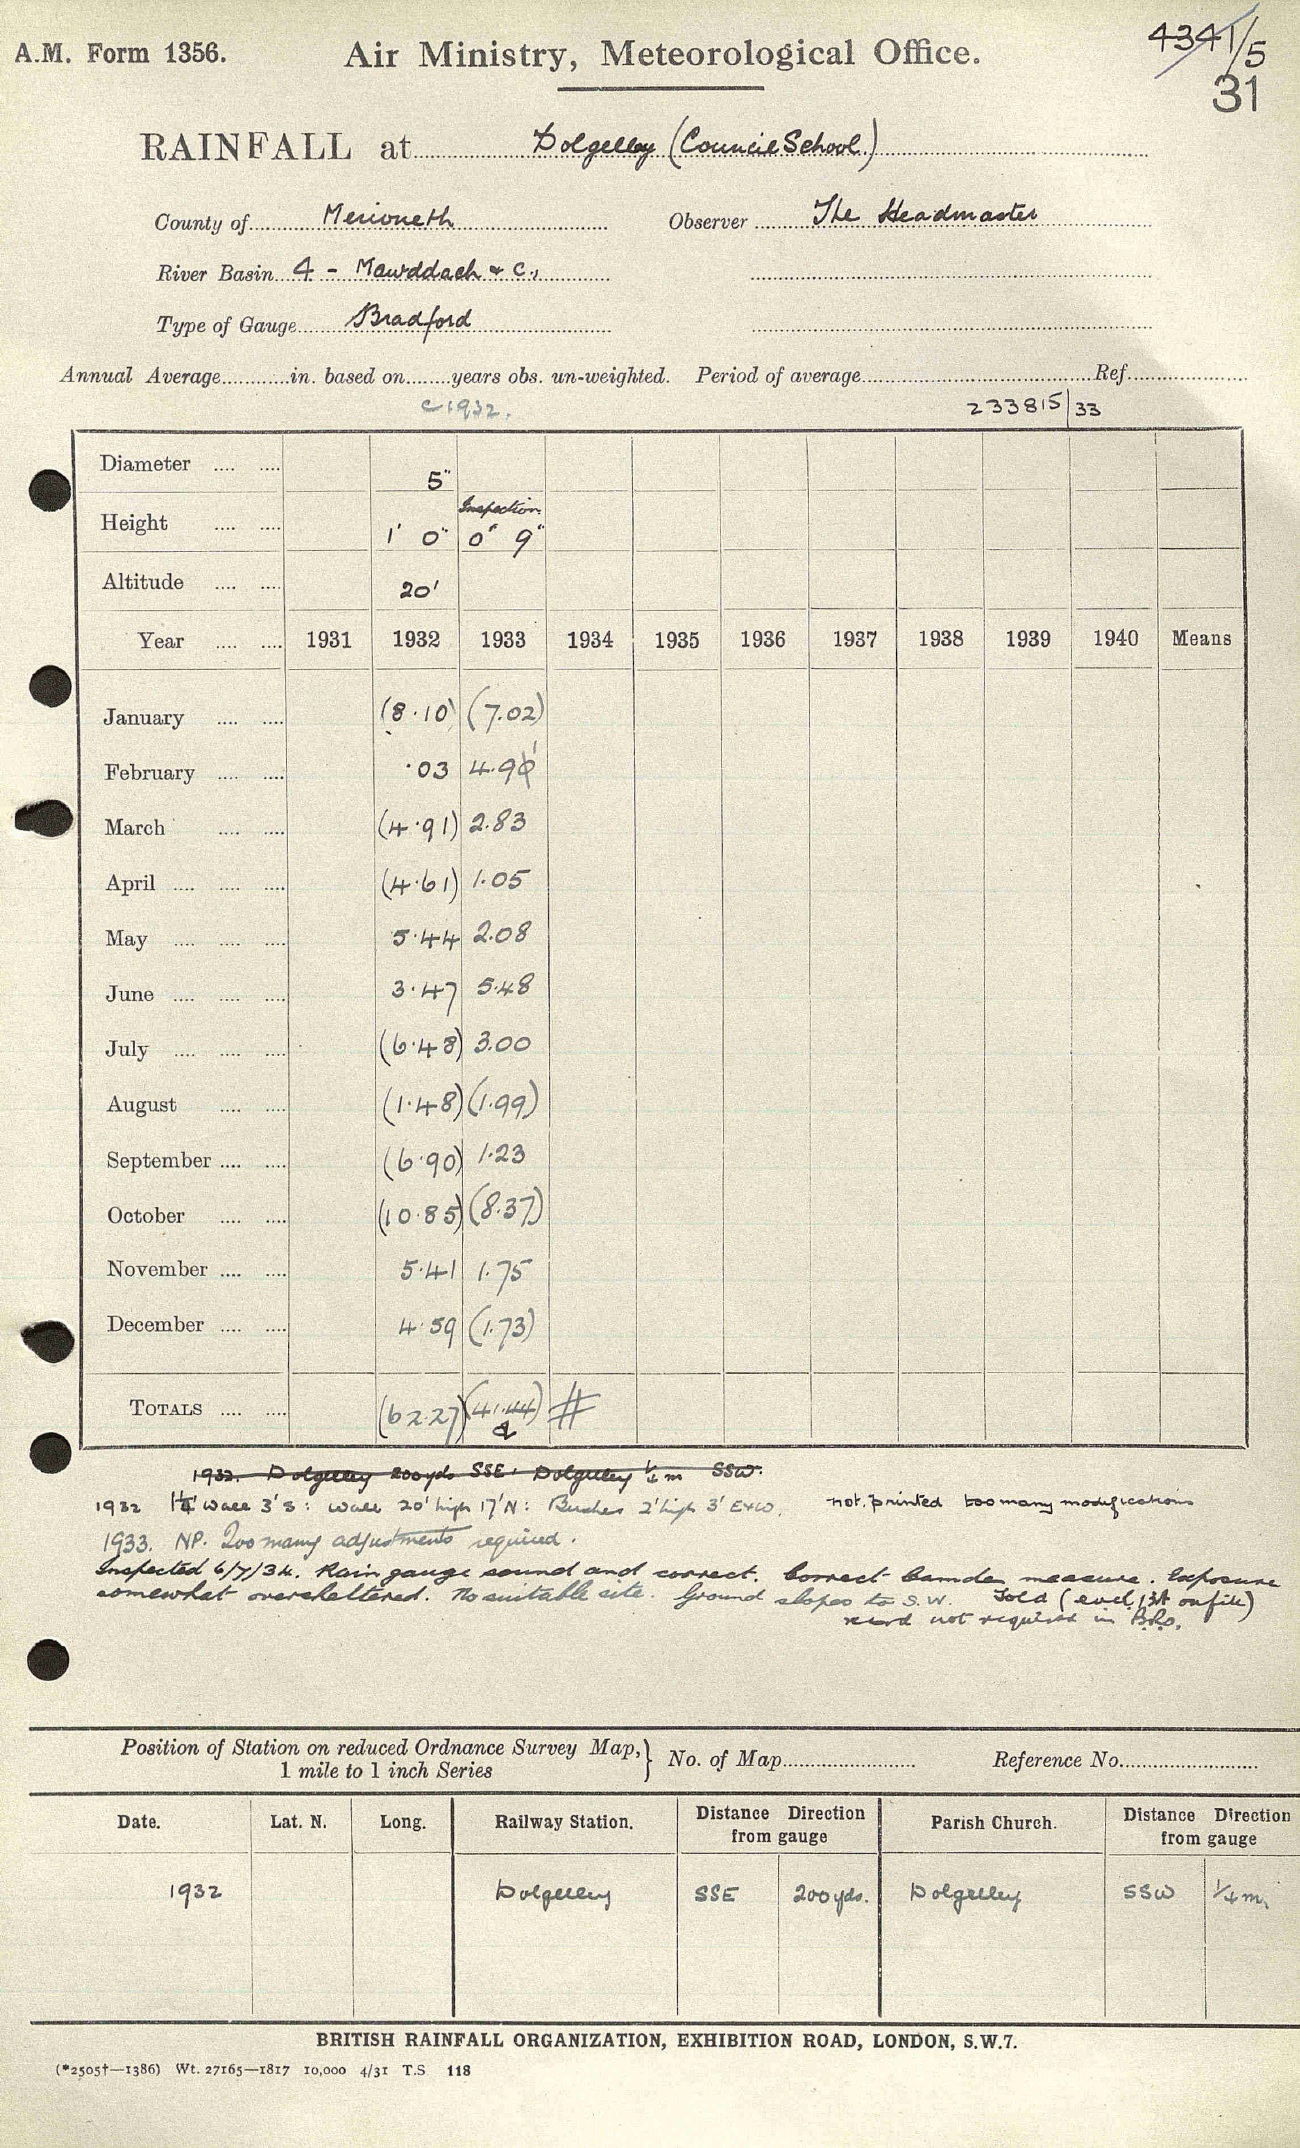 A.M. Form 1356. Air Ministry, Meteorological Office. 4341/5
31
RAINFALL at Dolgelley (Council School)
County of Merioneth Observer The Headmaster
River Basin 4 - Mawddach & C.,
Type of Gauge Bradford
Annual Average............in. based on........years obs. un-weighted. Period of average..........Ref..........
c 1932. 233815/33
Diameter .... .... 5"
Inspection.
Height .... .... 1' 0" 0' 9"
Altitude .... .... 20'
Year .... .... 1931 1932 1933 1934 1935 1936 1937 1938 1939 1940 Means
January .... .... (8.10) (7.02)
February .... .... .03 4.91
March .... .... (4.91) 2.83
April .... .... .... (4.61) 1.05
May .... .... .... 5.44 2.08
June .... .... .... 3.47 5.48
July .... .... .... (6.48) 3.00
August .... .... (1.48) (1.99)
September .... .... (6.90) 1.23
October .... .... (10.85) (8.37)
November .... .... 5.41 1.75
December .... .... 4.59 (1.73)
TOTALS .... .... (62.27) (41.44) #
1932. Dolgelley 200yds SSE. Dolgelley 1/4 m SSW.
1932 Wall 3'S: Wall 20' high 17'N: Bushes 2' high 3' E+W. not printed too many modifications
1933. NP. Too many adjustments required.
Inspected 6/7/34. Rain gauge sound and correct. Correct Camden measure. Exposure
somewhat oversheltered. No suitable site. Ground slopes to S.W. Told (encl. 13A on file)
record not required in B.R.O.
Position of Station on reduced Ordnance Survey Map,
1 mile to 1 inch Series } No. of Map.......... Reference No..........
Date. Lat. N. Long. Railway Station. Distance Direction from gauge Parish Church. Distance Direction from gauge
1932 Dolgelley SSE 200yds. Dolgelley SSW 1/4 m.
BRITISH RAINFALL ORGANIZATION, EXHIBITION ROAD, LONDON, S.W.7.
(*2505†—1386) Wt. 27165—1817 10,000 4/31 T.S 118